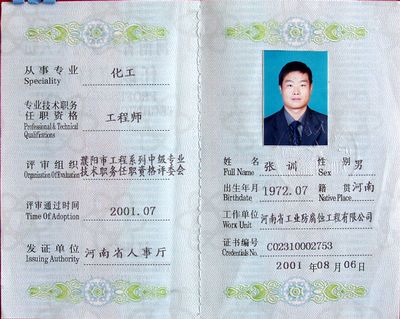 从事专业 化工
Speciality
专业技术职务
任职资格 工程师
Professional & Technical
Qualifications
评审组织 濮阳市工程系列中级专业
Organization Of Evaluation 技术职务任职资格评委会
评审通过时间 2001.07
Time Of Adoption
发证单位 河南省人事厅
Issuing Authority
姓名 张训 性别 男
Full Name Sex
出生年月 1972.07 籍贯 河南
Birthdate Native Place
工作单位 河南省工业防腐蚀工程有限公司
Work Unit
证书编号 C02310002753
Credentials No.
2001 年 08 月 06 日